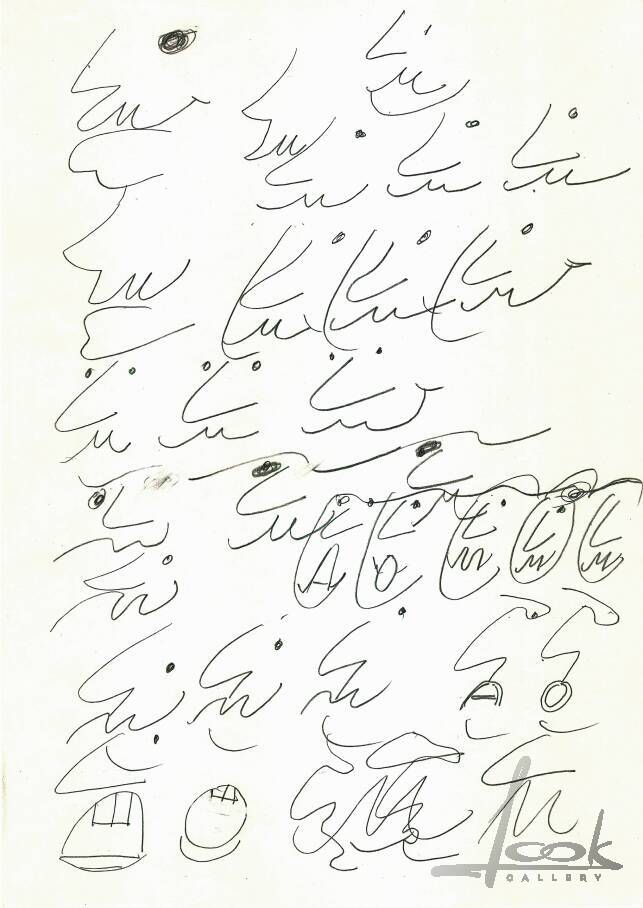 look
GALLERY